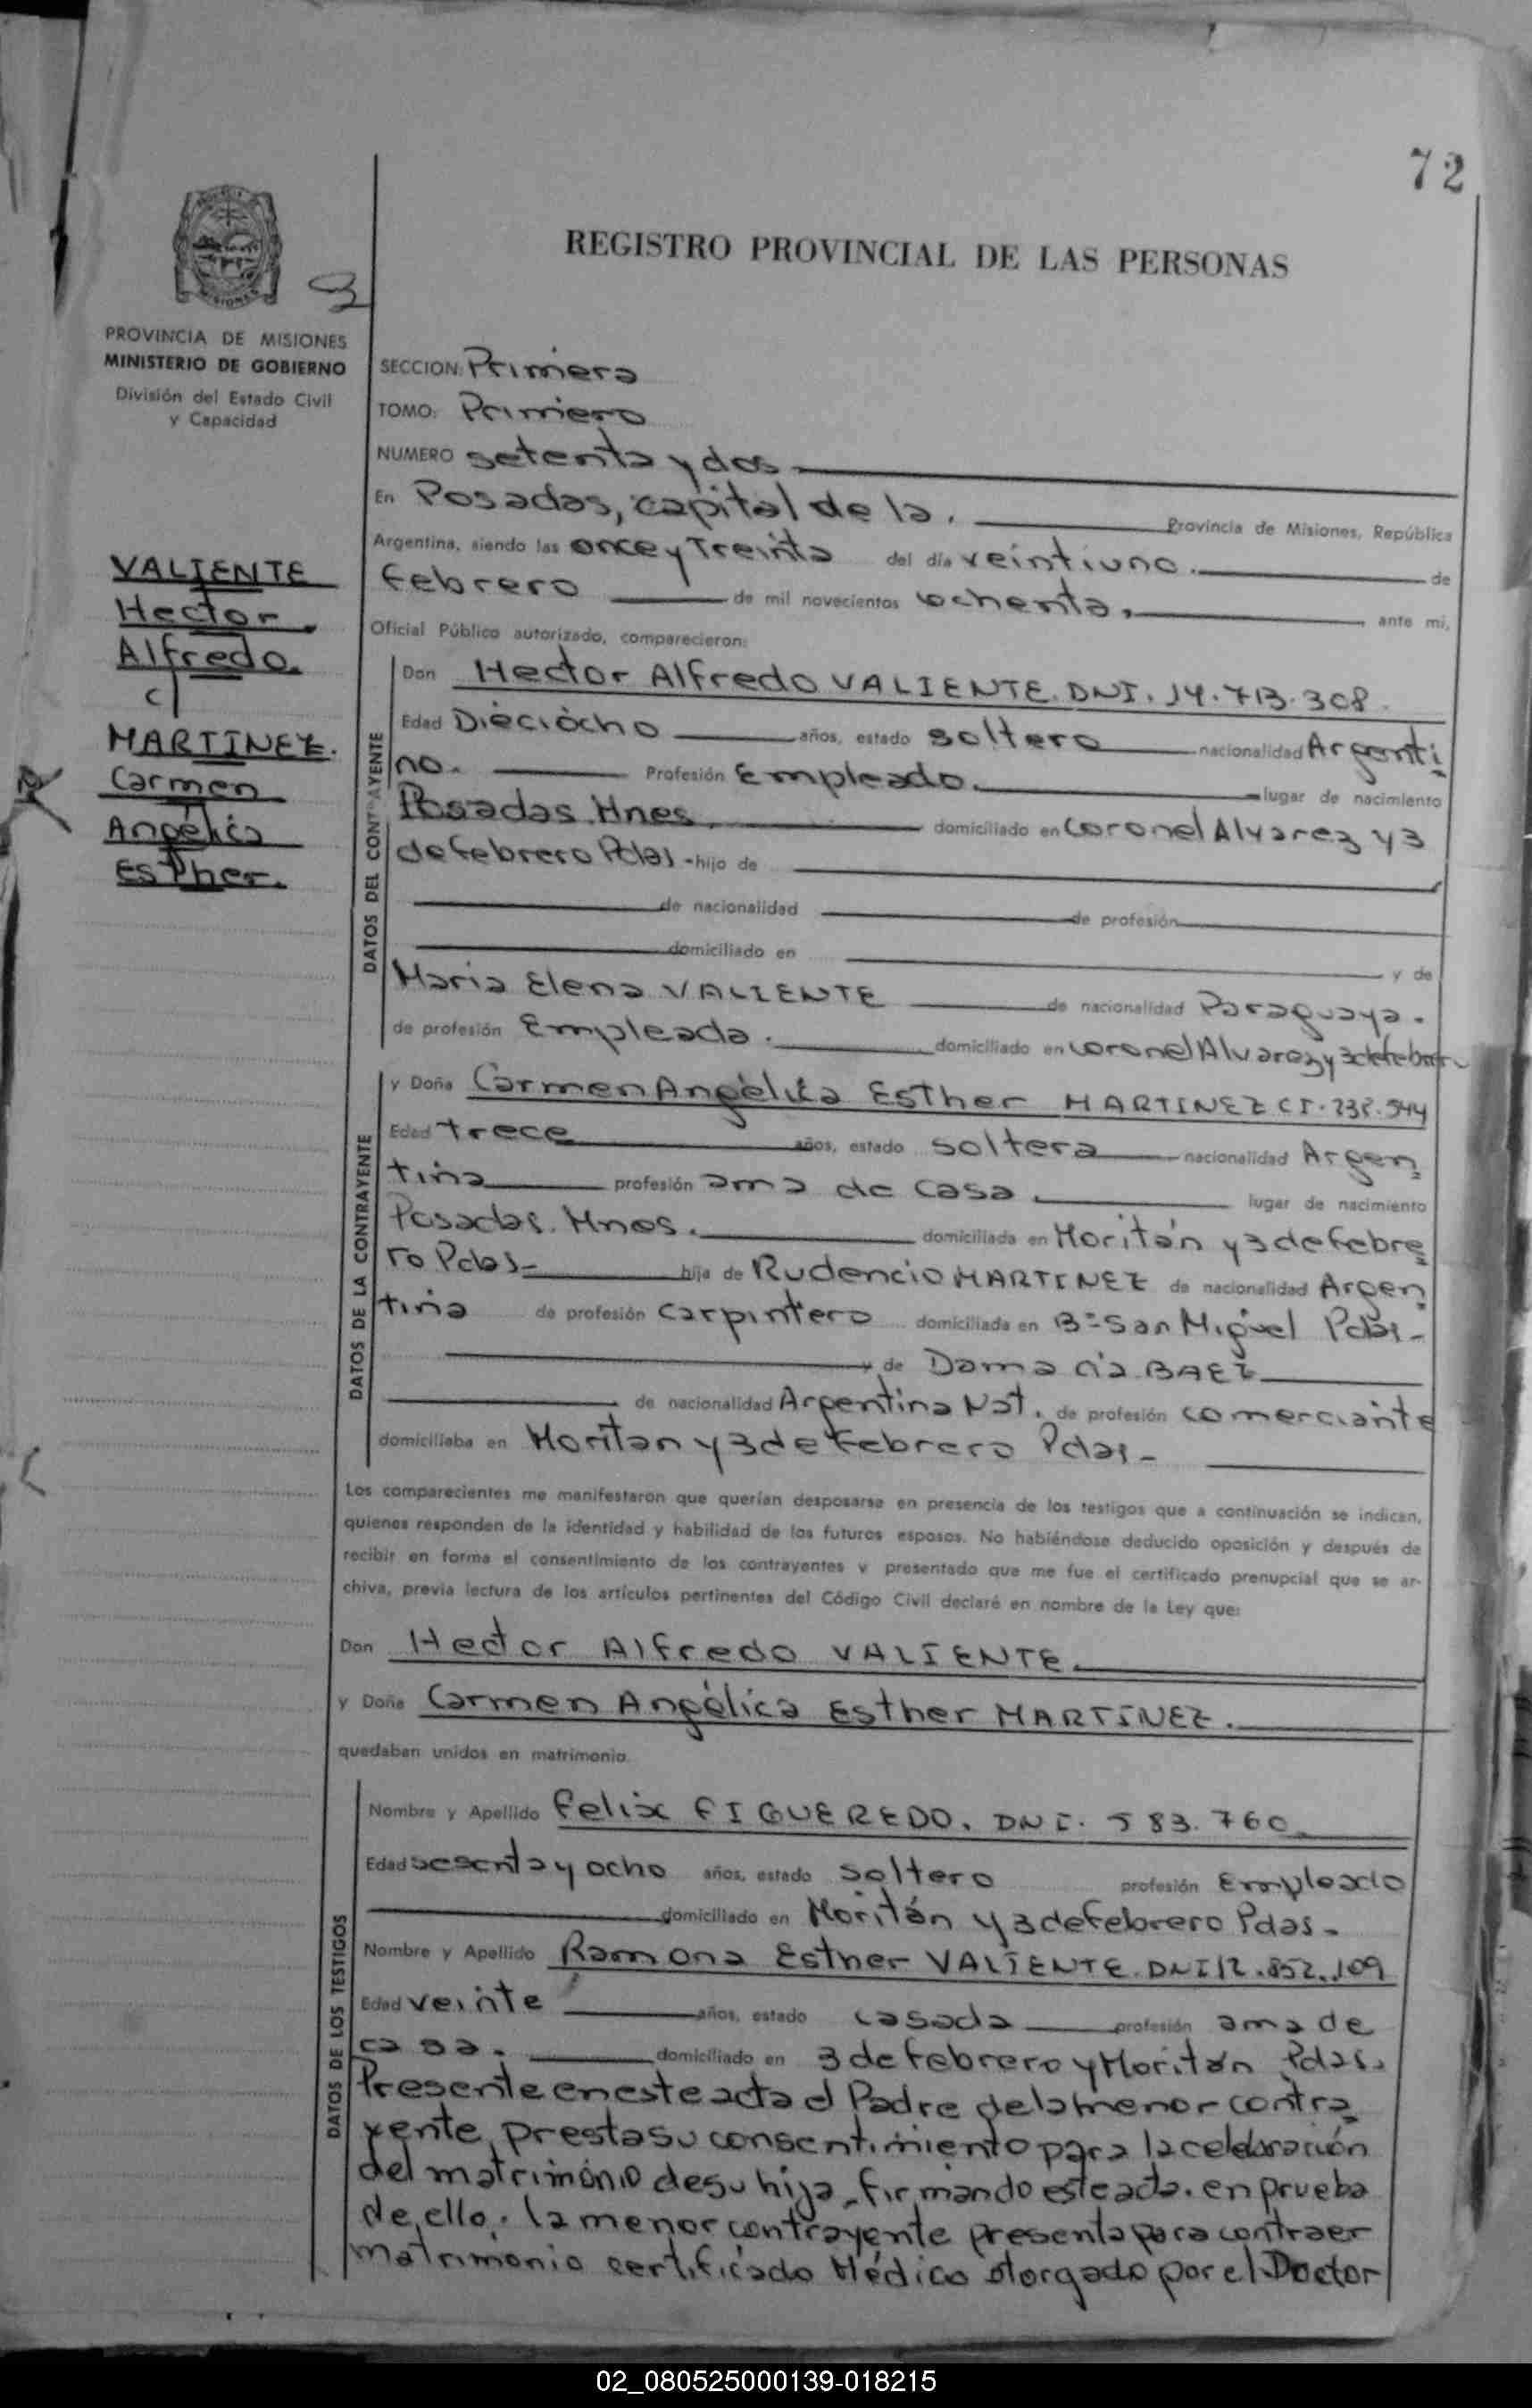 72
REGISTRO PROVINCIAL DE LAS PERSONAS
MISIONES
PROVINCIA DE MISIONES
MINISTERIO DE GOBIERNO
División del Estado Civil
y Capacidad
VALIENTE
Hector
Alfredo.
c/
MARTINEZ.
Carmen
Angélica
Esther.
SECCION: Primera
TOMO: Primero
NUMERO setenta y dos
En Posadas, capital de la. Provincia de Misiones, República
Argentina, siendo las once y Treinta del día veintiuno. de
febrero de mil novecientos ochenta, ante mí,
Oficial Público autorizado, comparecieron:
DATOS DEL CONTRAYENTE
Don Hector Alfredo VALIENTE. DNI. 14.713.308.
Edad Dieciocho años, estado soltero nacionalidad Argenti
no. Profesión Empleado. lugar de nacimiento
Posadas. Mnes. domiciliado en Coronel Alvarez y 3
de febrero Pdas - hijo de
de nacionalidad de profesión
domiciliado en y de
Maria Elena VALIENTE de nacionalidad Paraguaya.
de profesión Empleada. domiciliado en Coronel Alvarez y 3 de febrero
DATOS DE LA CONTRAYENTE
y Doña Carmen Angélica Esther MARTINEZ CI. 232.544
Edad trece años, estado soltera nacionalidad Argen
tina profesión ama de casa. lugar de nacimiento
Posadas. Mnes. domiciliada en Moritán y 3 de febre
ro Pdas- hija de Rudencio MARTINEZ de nacionalidad Argen
tina de profesión carpintero domiciliada en Bº San Miguel Pdas-
y de Damacia BAEZ
de nacionalidad Argentina Nat. de profesión comerciante
domiciliaba en Moritan y 3 de febrero Pdas-
Los comparecientes me manifestaron que querían desposarse en presencia de los testigos que a continuación se indican,
quienes responden de la identidad y habilidad de los futuros esposos. No habiéndose deducido oposición y después de
recibir en forma el consentimiento de los contrayentes y presentado que me fue el certificado prenupcial que se ar-
chiva, previa lectura de los artículos pertinentes del Código Civil declaré en nombre de la Ley que:
Don Hector Alfredo VALIENTE.
y Doña Carmen Angélica Esther MARTINEZ.
quedaban unidos en matrimonio.
DATOS DE LOS TESTIGOS
Nombre y Apellido Felix FIGUEREDO. DNI. 583.760.
Edad sesenta y ocho años, estado soltero profesión Empleado
domiciliado en Moritán y 3 de febrero Pdas-
Nombre y Apellido Ramona Esther VALIENTE. DNI 12.852.109
Edad veinte años, estado casada profesión ama de
casa. domiciliado en 3 de febrero y Moritán Pdas.
Presente en este acta el Padre de la menor contra
yente, presta su consentimiento para la celebración
del matrimonio de su hija, firmando este acta. en prueba
de ello. la menor contrayente presenta para contraer
matrimonio certificado Médico otorgado por el Doctor
02_080525000139-018215